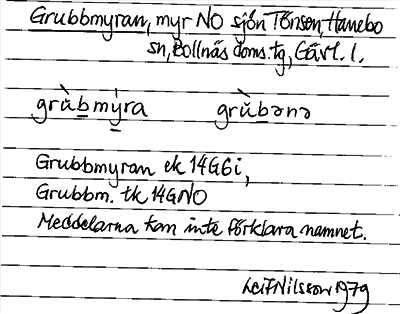 Grubbmyran, myr NO sjön Tönsen, Hanebo
sn, Bollnäs doms. tg, Gävl. l.
grùb̲mý̲ra grùbənə
Grubbmyran ek 14G6i,
Grubbm. tk 14GNO
Meddelarna kan inte förklara namnet.
Leif Nilsson 1979